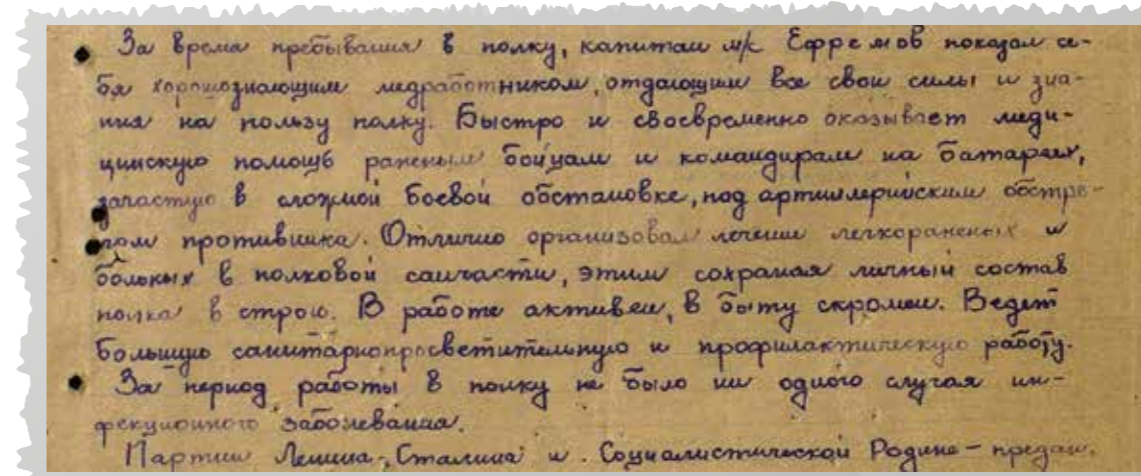 За время пребывания в полку, капитан м/с Ефремов показал се-
бя хорошознающим медработником, отдающим все свои силы и зна-
ния на пользу полку. Быстро и своевременно оказывает меди-
цинскую помощь раненым бойцам и командирам на батареях,
зачастую в сложной боевой обстановке, под артиллерийским обстре-
лом противника. Отлично организовал лечение легкораненых и
больных в полковой санчасти, этим сохраняя личный состав
полка в строю. В работе активен, в быту скромен. Ведет
большую санитарнопросветительную и профилактическую работу.
За период работы в полку не было ни одного случая ин-
фекционного заболевания.
Партии Ленина-Сталина и Социалистической Родине - предан.